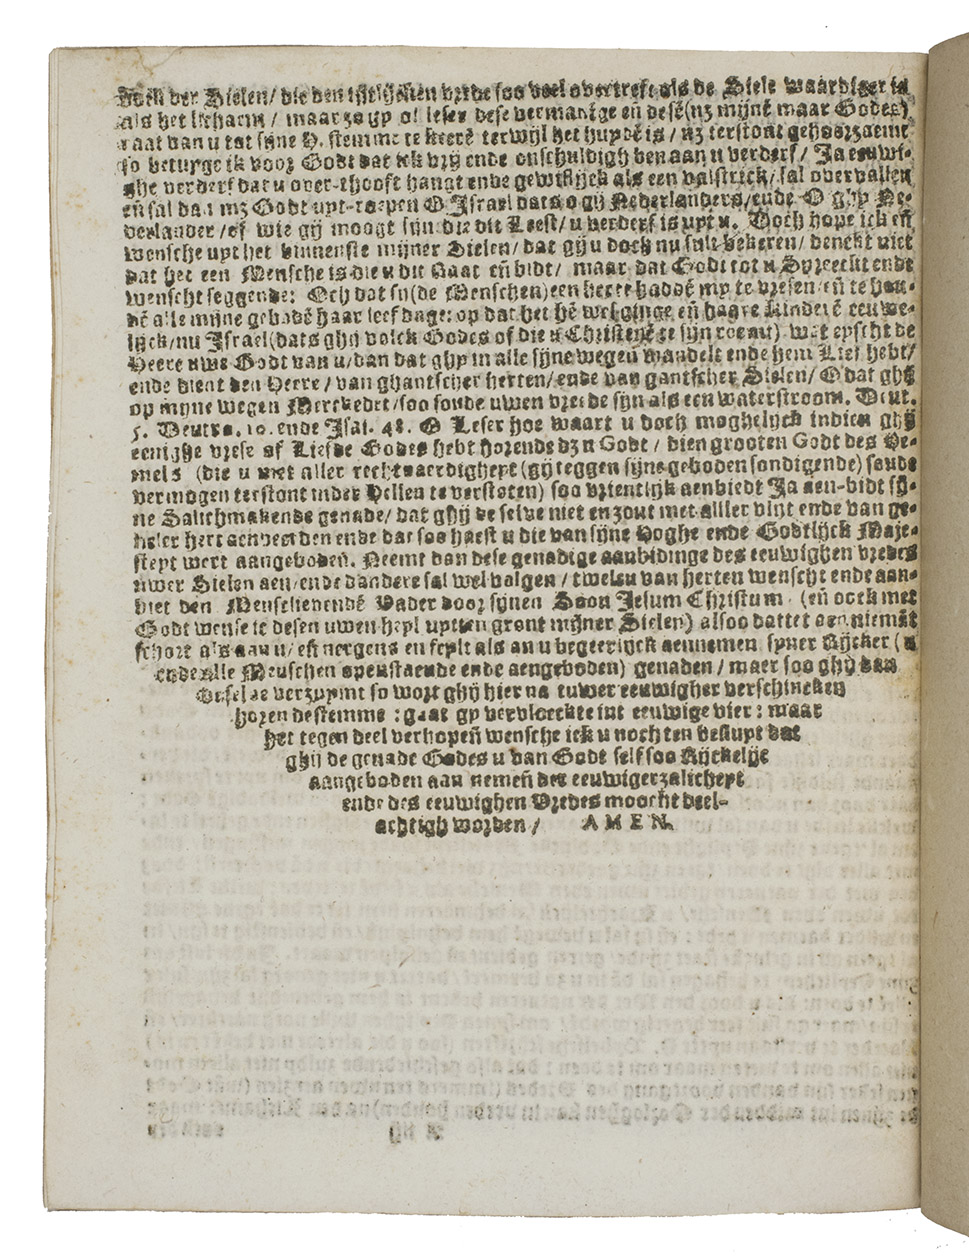 der Sielen / die den tijtlijcken vrede soo veel overtreft als de Siele waardiger is
als het lichaem / maar zo yp o! leser dese vermanige eñ desē (nz mijnē maar Godes)
raat van u tot sijne H. stemme te keerē terwijl het huydē is / nz terstont gehoorzaemt
so betuyge ik voor Godt dat ick vrij ende onschuldigh ben aan u verderf / Ja eeuwi-
ghe verderf dat u over-thooft hangt ende gewislijck als een valstrick / sal overvallen
eñ sal dan mz Godt uyt-roepen O Israel dats o gij Nederlanders / ende O ghy Ne-
derlander / of wie gij moogt sijn die dit Leest / u verderf is uyt u. Doch hope ick eñ
wensche uyt het binnenste mijner Sielen / dat gij u doch nu sult bekeren / denckt niet
dat het een Mensche is die u dit Raat eñ bidt / maar dat Godt tot u Spreeckt ende
wenscht seggende: Och dat sy (de Menschen) een herte haddē my te vresen / eñ te hou-
dē alle mijne gebodē haar leefdage: op dat het hē wel ginge eñ haare Kinderē eeuwe-
lijck / nu Israel (dats ghij volck Godes of die u Christenē te sijn roemt) wat eyscht de
Heere uwe Godt van u / dan dat ghy in alle sijne wegen wandelt ende hem Lief hebt /
ende dient den Heere / van ghantscher herten / ende van gantscher Sielen / O dat ghij
op myne wegen Merckedet / soo soude uwen vrede sijn als een waterstroom. Deut.
5. Deutro. 10. ende Isai. 48. O Leser hoe waart u doch moghelijck indien ghij
eenighe vrese of Liefde Godes hebt horende dz u Godt / dien grooten Godt des He-
mels (die u met aller rechtvaerdigheyt (gij teggen sijne geboden sondigende) soude
vermogen terstont inder Hellen te verstoten) soo vrientlijk aenbiedt Ja aen-bidt sij-
ne Salichmakende genade / dat ghij de selve niet en zout met alller vlyt ende van ge-
heler hert aenveerden ende dat soo haest u die van sijne Hoghe ende Godtlijck Maje-
steyt wert aangeboden. Neemt dan dese genadige aanbidinge des eeuwighen vredes
uwer Sielen aen / ende dandere sal wel volgen / twelcku van herten wenscht ende aan-
biet den Menselievendē Vader door sijnen Soon Jesum Christum (eñ oock met
Godt wense ic desen uwen heyl uytten gront mijner Sielen) alsoo dattet aen niemāt
schort als aan u / eñ nergens en feylt als an u begeerlijck aennemen syner Rijcker (u
ende alle Menschen openstaende ende aengeboden) genaden / maer soo ghij van
deselve verzuymt so wort ghij hier na tuwer eeuwigher verschincken
horen de stemme: gaat gy vervloeckte int eeuwige vier: maar
het tegen deel verhopen wensche ick u noch ten besluyt dat
ghij de genade Godes u van Godt self soo Rijckelijc
aangeboden aan nemen der eeuwiger zalicheyt
ende des eeuwighen Vredes moocht deel-
achtigh worden / AMEN.